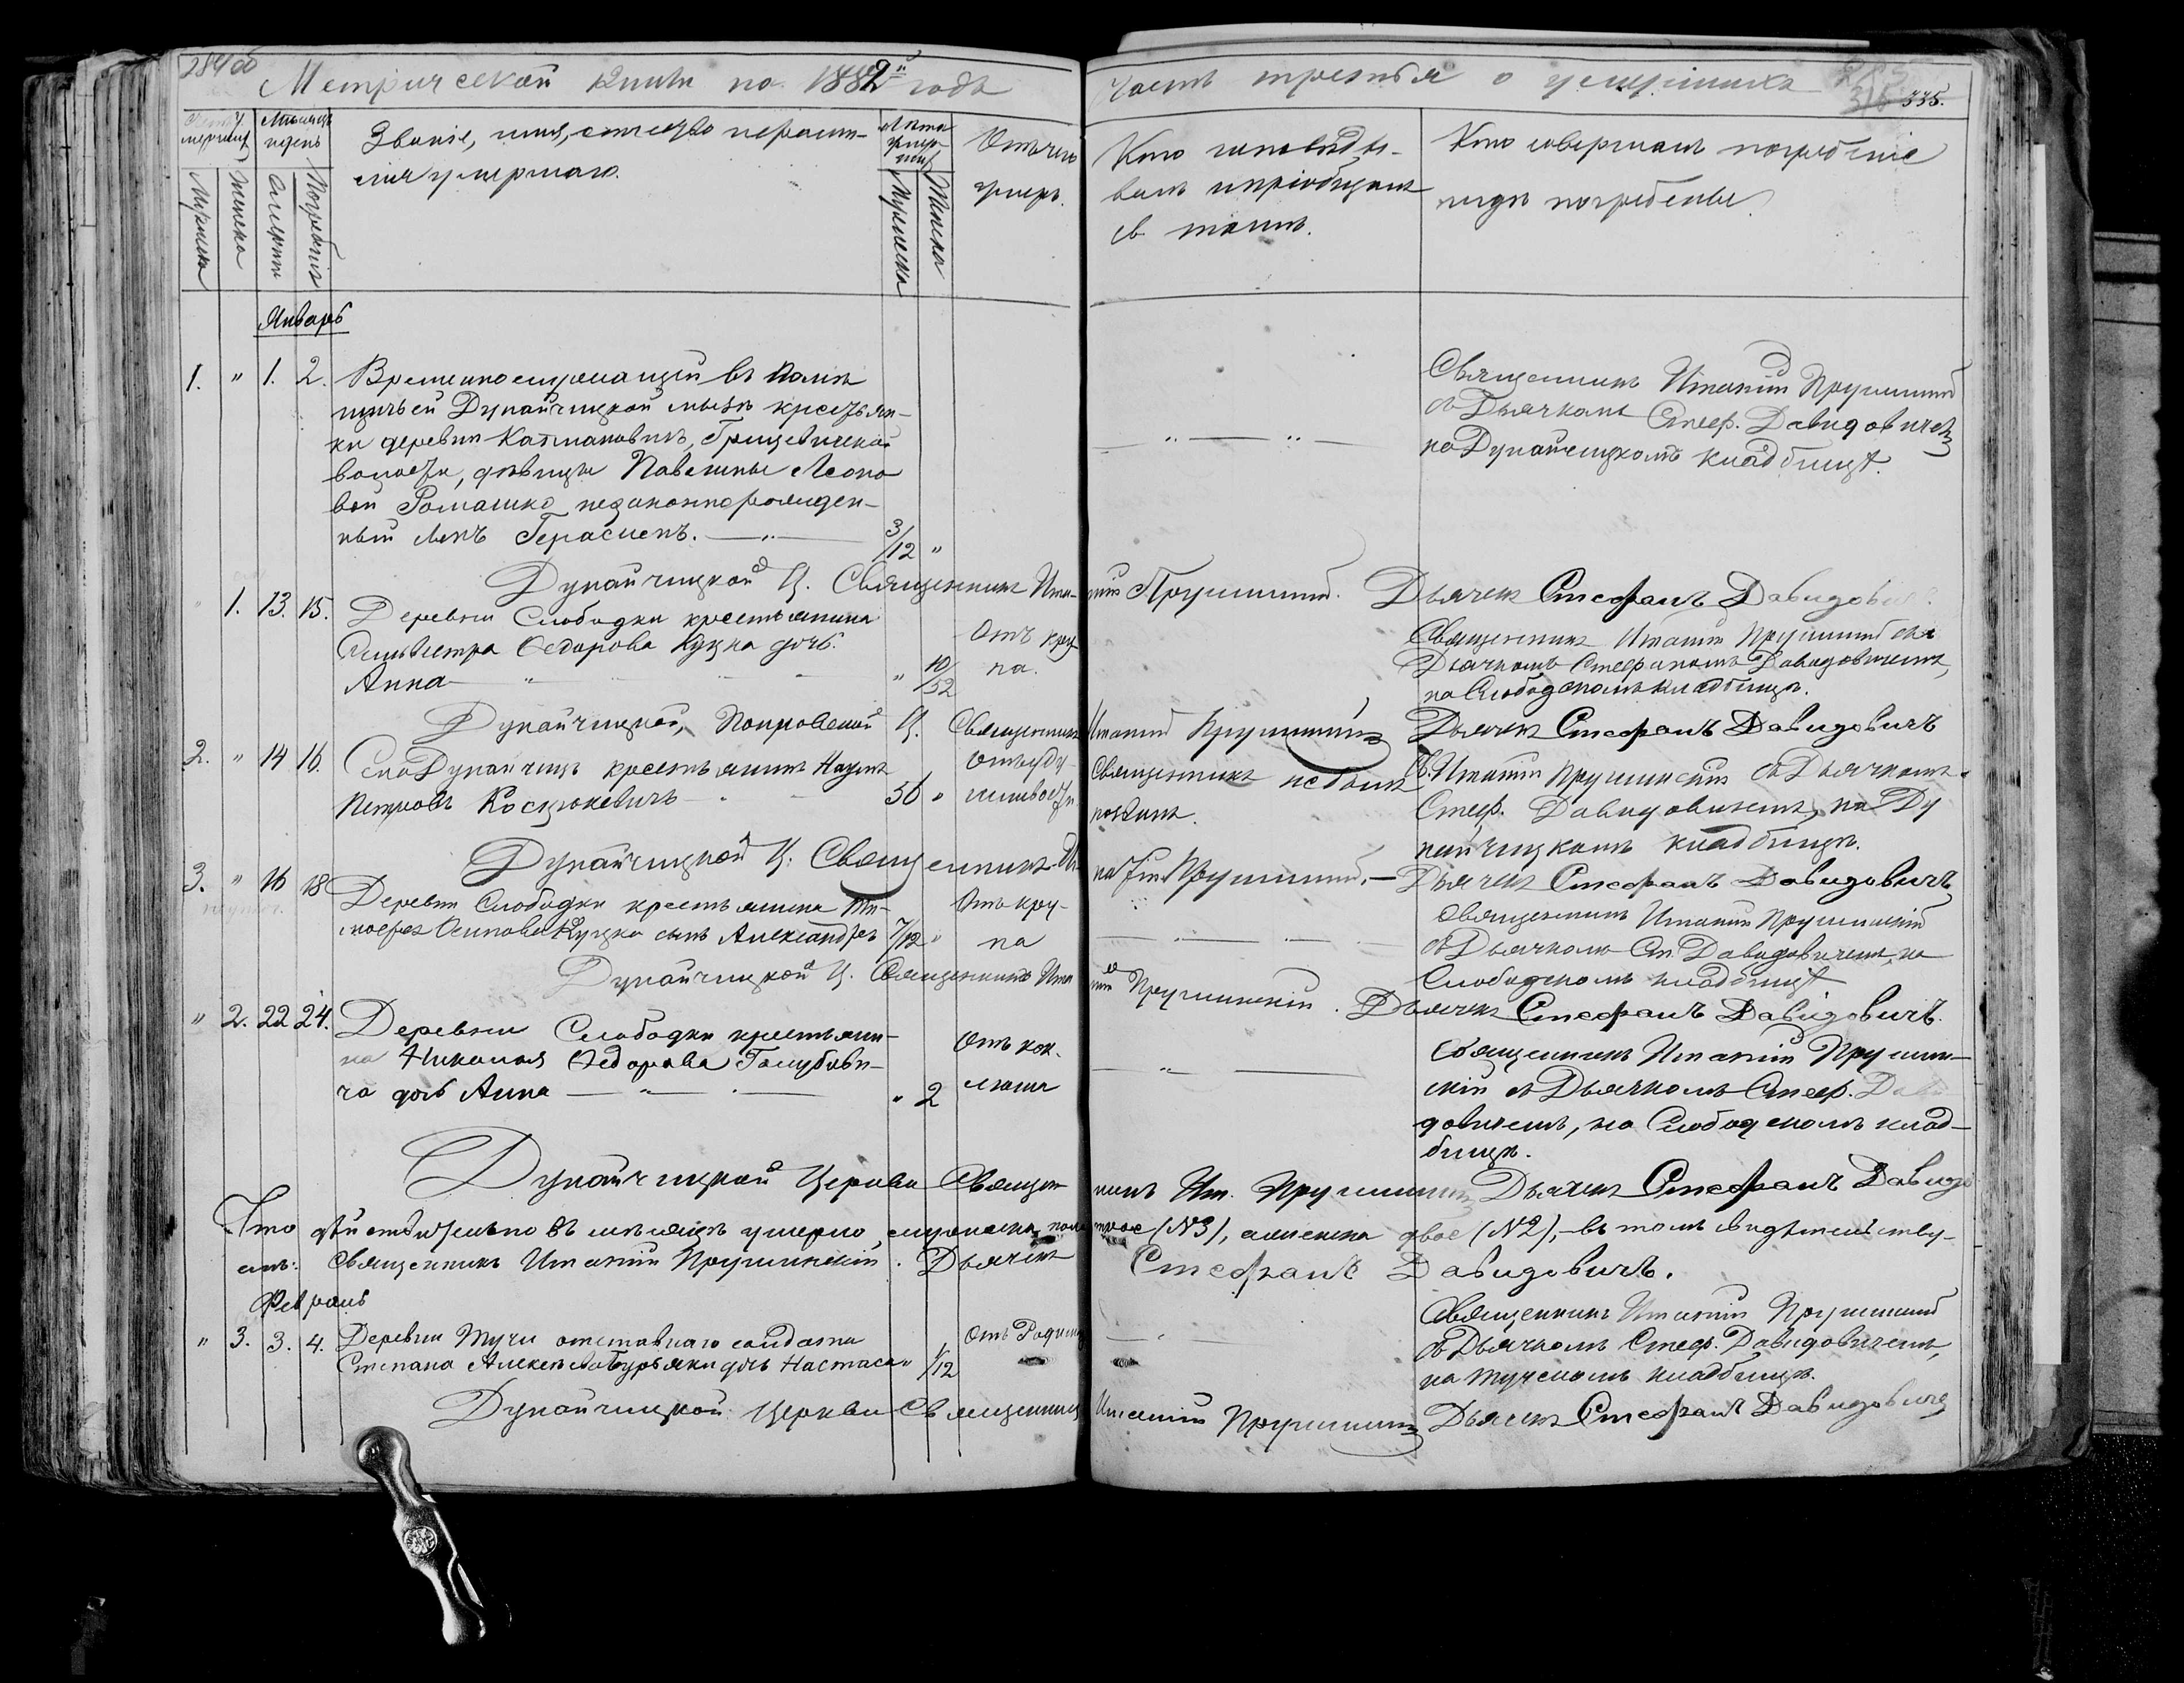 284об
Метрической книги на 1882й годъ
Часть третья о умершихъ
335.
Мѣсяцъ
и день
Званіе, имя, отчество и фами-
лия умершаго.
Лѣта
умер-
шаго
Отъ чего
умеръ.
Кто исповѣды-
валъ и пріобщалъ
св. таинъ.
Кто совершалъ погребеніе
и гдѣ погребены.
Мужеска
Женска
Смерти
Погребенія
Мужеска
Женска
Январь
1. " 1. 2. Временно
Дунайчицкой мызѣ крестьян-
ки деревни Кацмановичъ, Грицевичской
волости, дѣвицы Павлины Леоно
вой Ромашко незаконнорожден-
ный сынъ Герасимъ. — " — 3/12 "
— " — " —
Священникъ Игнатій Прушинскій
съ Дьячкомъ Стеф. Давидовичемъ
на Дунайчицкомъ кладбищѣ.
Дунайчицкой Ц. Священникъ Игна-
тій Прушинскій. Дьячекъ Стефанъ Давидович
" 1. 13. 15. Деревни Слободки крестьянина
Сильвестра Ѳедорова Куцка дочь
Анна — " 10/52
Отъ кру-
па.
Священникъ Игнатій Прушинскій съ
Дьячкомъ Стефаномъ Давидовичемъ,
на Слободскомъ кладбищѣ.
Дунайчицкой, Покровской Ц. Священникъ
Игнатій Прушинскій Дьячекъ Стефанъ Давидовичъ
2. " 14 16. Села Дунайчицъ крестьянинъ Наумъ
Петровъ Костюкевичъ — 56 "
Отъ уду-
шливости
Священникъ не былъ
позванъ.
Св. Игнатій Прушинскій съ Дьячкомъ
Стеф. Давидовичемъ, на Ду
найчицкомъ кладбищѣ.
Дунайчицкой Ц. Священникъ Иг-
натій Прушинскій, — Дьячекъ Стефанъ Давидовичъ
3. " 16 18 Деревни Слободки крестьянина Ти-
мофея Осипова Куцка сынъ Александръ 7/12 "
Отъ кру-
па
Священникъ Игнатій Прушинскій
съ Дьячкомъ Ст. Давидовичемъ, на
Слободскомъ кладбищѣ
Дунайчицкой Ц. Священникъ Игна
тій Прушинскій. Дьячекъ Стефанъ Давидовичъ.
" 2. 22 24. Деревни Слободки крестьяни-
на Николая Ѳедорова Голубови-
ча дочь Анна — " — " 2
Отъ кок-
люша
— " —
Священникъ Игнатій Прушин-
скій съ Дьячкомъ Стеф. Дави
довичемъ, на Слободскомъ клад-
бищѣ.
Дунайчицкой Церкви Священ
никъ Иг. Прушинскій Дьячекъ Стефанъ Давидо
Что дѣйствительно въ мѣсяцѣ умерло мужеска пола трое (№3), а женска двое (№2), — въ томъ свидѣтельству-
емъ: Священникъ Игнатій Прушинскій. Дьячекъ Стефанъ Давидовичъ.
Февраль
" 3. 3. 4. Деревни Тучи отставнаго солдата
Степана Алексѣева Буряки дочь Настасія " 1/12
Отъ Родимц
Священникъ Игнатій Прушинскій
съ Дьячкомъ Стеф. Давидовичемъ,
на Тучскомъ кладбищѣ.
Дунайчицкой Церкви Священникъ
Игнатій Прушинскій Дьячекъ Стефанъ Давидовичъ